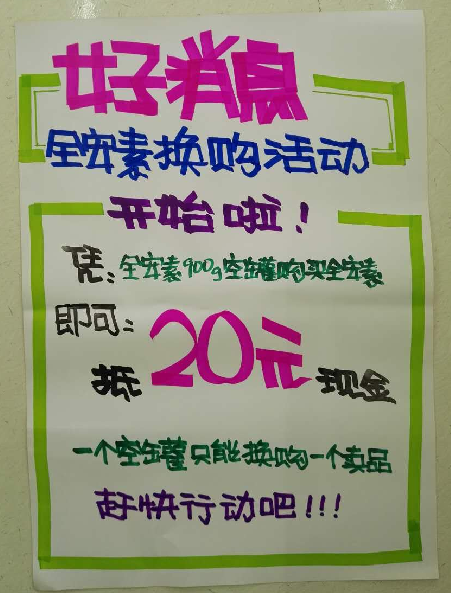 好消息
全安素换购活动
开始啦!
凭:全安素900g空罐购买全安素
即可:
抵20元现金
一个空罐只能换购一个卖品
赶快行动吧!!!